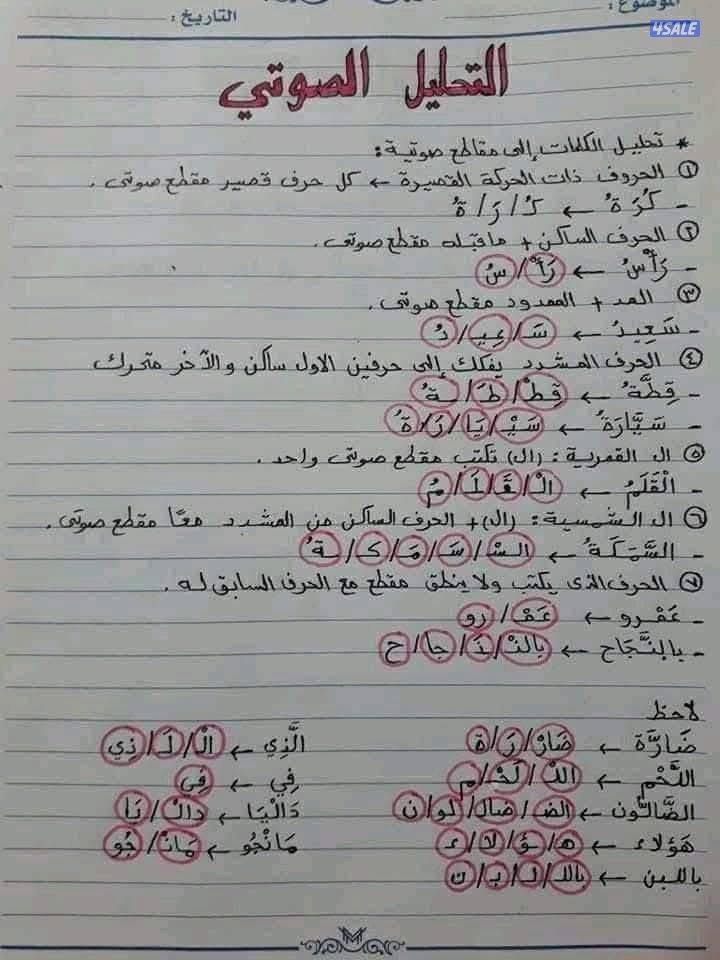 الموضوع :
التاريخ :
4SALE
التحليل الصوتي
* تحليل الكلمات إلى مقاطع صوتية :
① الحروف ذات الحركة القصيرة ← كل حرف قصير مقطع صوتى .
- كُرَةُ ← كُ / رَ / ةُ
② الحرف الساكن + ماقبله مقطع صوتى .
- رَأْسُ ← رَأْ / سُ
③ المد + الممدود مقطع صوتى .
- سَعِيدُ ← سَـ / عِيـ / دُ
④ الحرف المشدد يفكك إلى حرفين الاول ساكن والآخر متحرك
- قِطَّةُ ← قِطْ / طَـ / ـةُ
- سَيَّارَةُ ← سَيْـ / يَا / رَ / ةُ
⑤ ال القمرية : (ال) تكتب مقطع صوتى واحد .
- الْقَلَمُ ← الْـ / قَـ / لَـ / مُ
⑥ ال الشمسية : (ال) + الحرف الساكن من المشدد معًا مقطع صوتى .
- السَّمَكَةُ ← السْـ / سَـ / مَـ / كَـ / ـةُ
⑦ الحرف الذى يكتب ولا ينطق مقطع مع الحرف السابق له .
- عَمْرو ← عَمْـ / رو
- بالنَّجَاح ← بالنْـ / نَـ / جا / ح
لاحظ
ضَارَّة ← ضَارْ / رَ / ة
الَّذِي ← الْ / لَـ / ذِي
اللَّحْم ← اللْـ / لَحْـ / م
فِي ← فِي
الضَّالُّون ← الضـ / ضال / لو / ن
دَالْيَا ← دالْـ / يَا
هَؤلاء ← هـ / ؤ / لا / ء
مَانْجُو ← مَانْـ / جُو
باللبن ← باللـ / لـ / بـ / ن